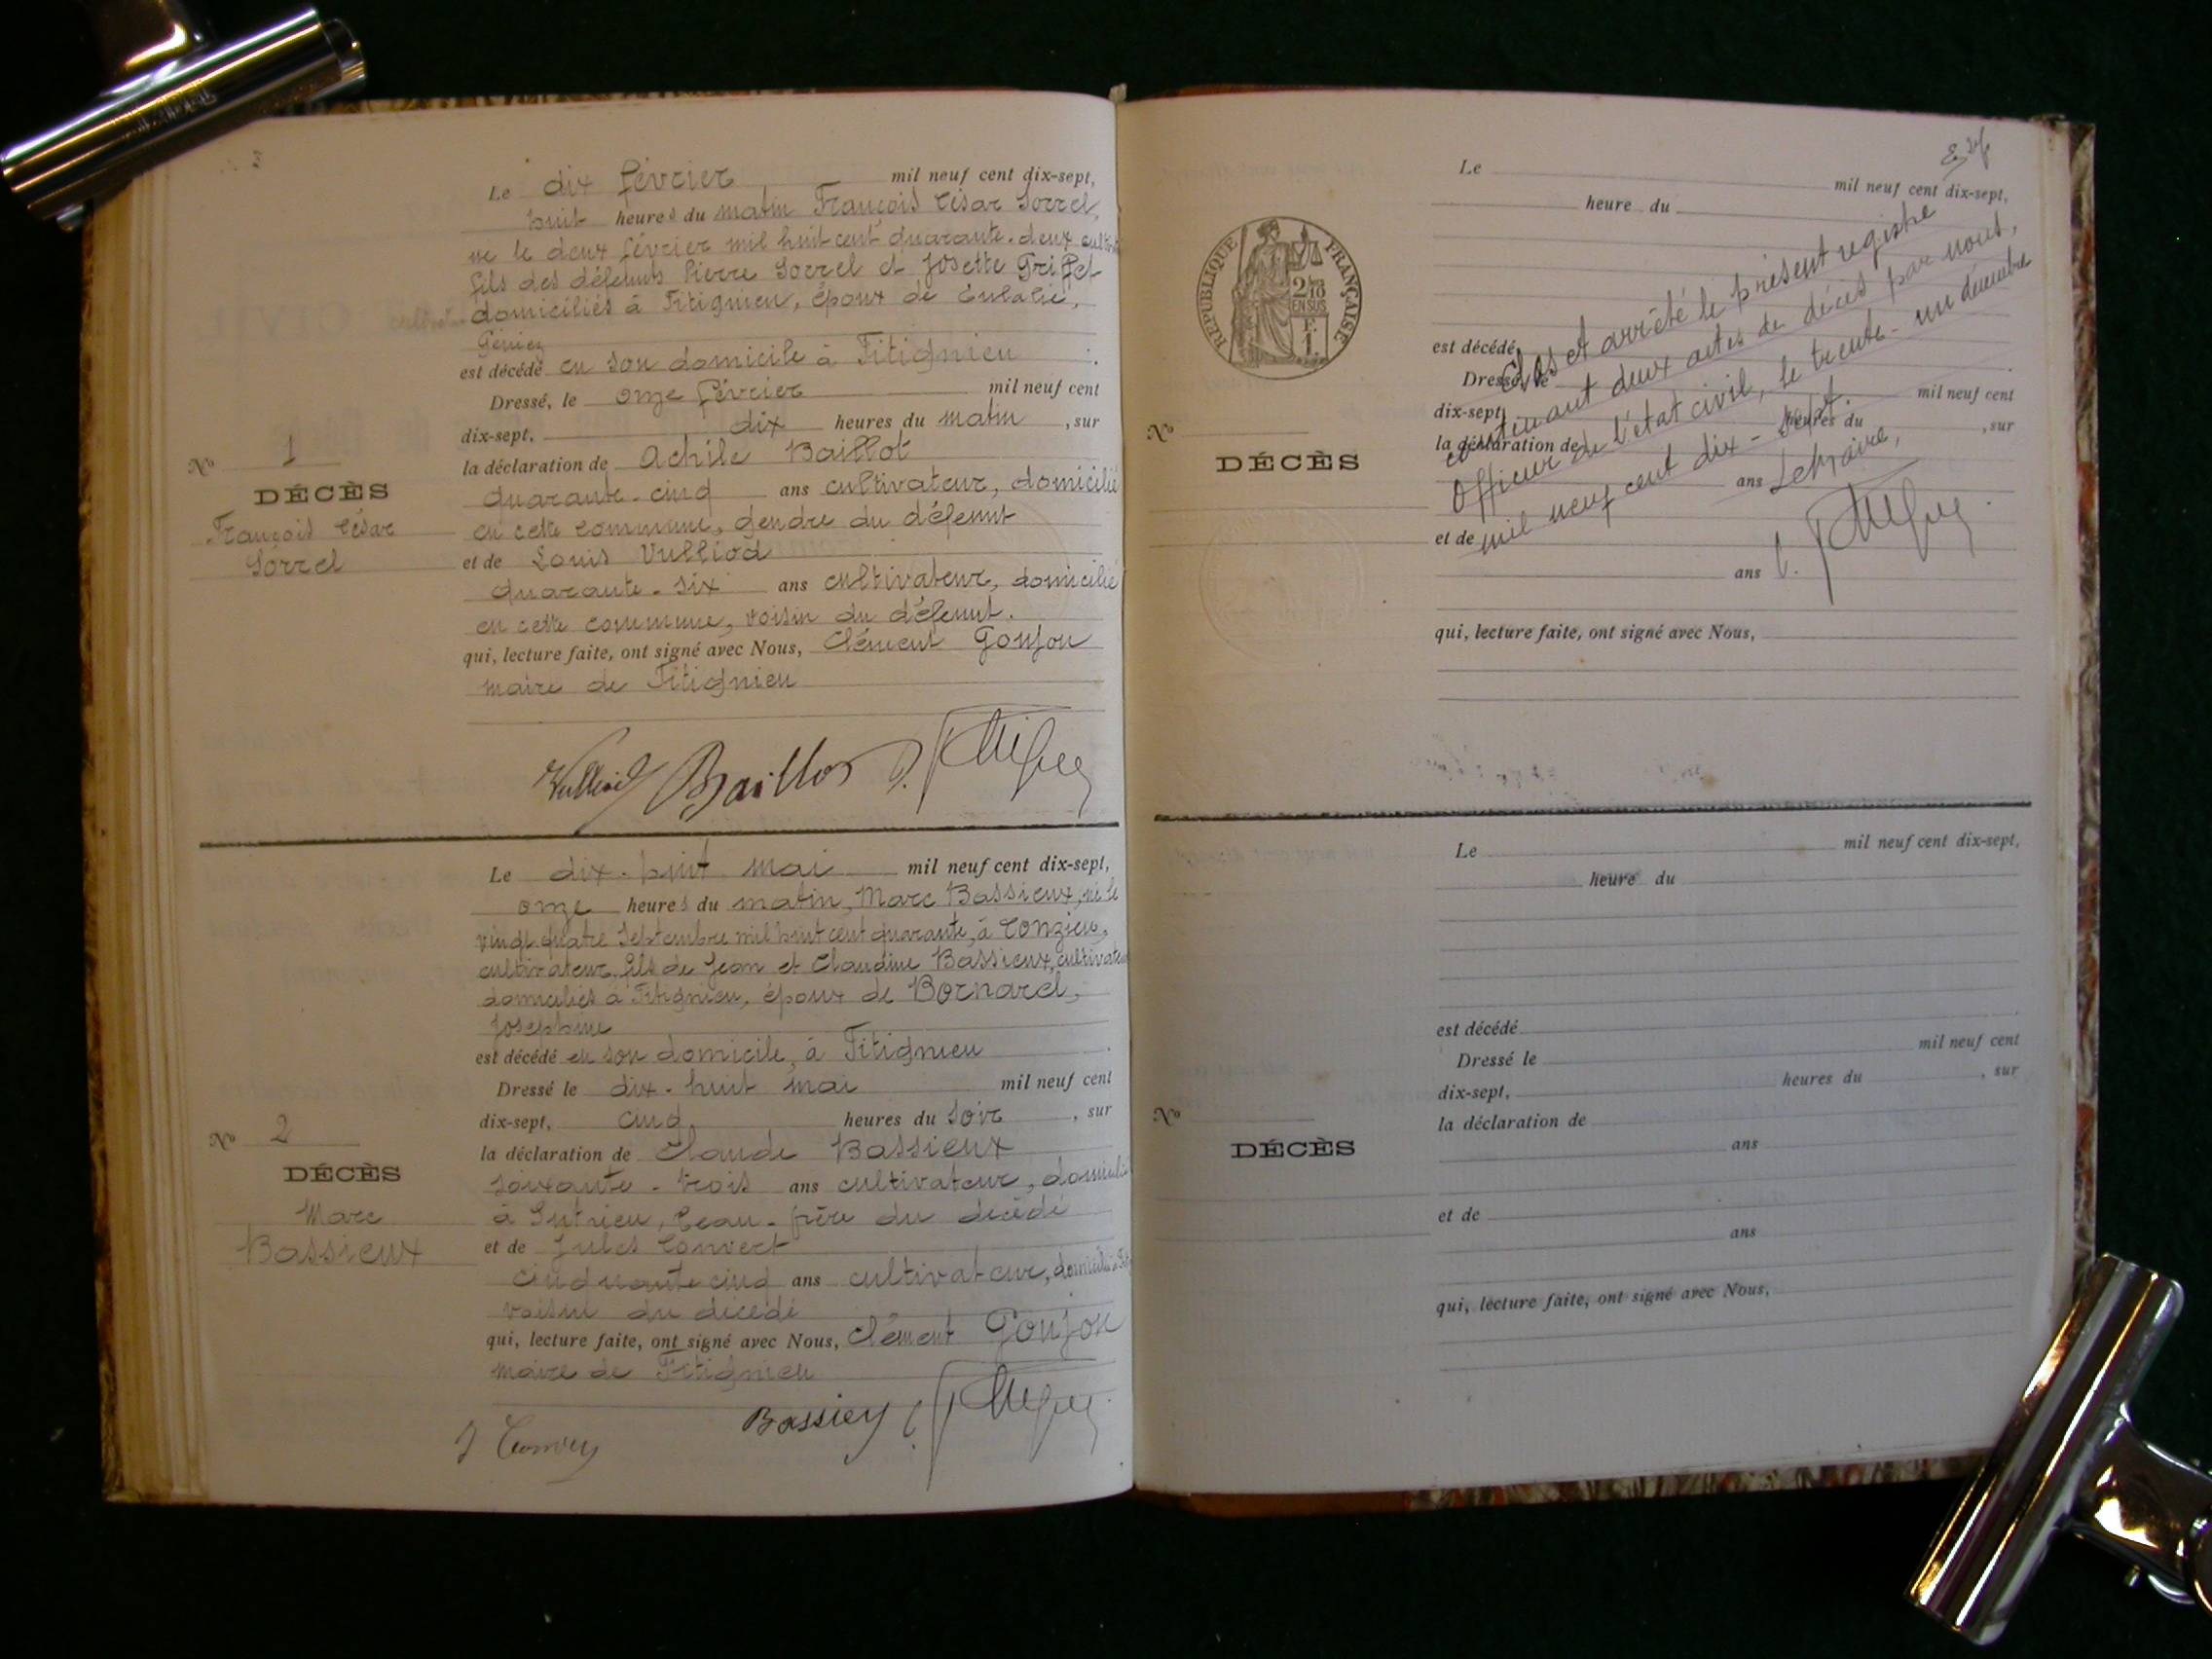 Le dix février mil neuf cent dix-sept,
huit heures du matin François César Sorrel,
né le deux février mil huit cent quarante-deux
fils des défunts Pierre Sorrel et Josette Griffet
domiciliés à Fitignieu, époux de Eulalie,
Géniez
est décédé en son domicile à Fitignieu
Dressé, le onze février mil neuf cent
dix-sept, dix heures du matin, sur
la déclaration de Achile Baillot
quarante-cinq ans cultivateur, domicilié
en cette commune, gendre du défunt
et de Louis Vulliod
quarante-six ans cultivateur, domicilié
en cette commune, voisin du défunt.
qui, lecture faite, ont signé avec Nous, Clément Goujon
maire de Fitignieu
Vulliod Baillot
No 1
DÉCÈS
François César
Sorrel
Le dix-huit mai mil neuf cent dix-sept,
onze heures du matin, Marc Bassieux, né le
vingt-quatre Septembre mil huit cent quarante, à Conzieu,
cultivateur, fils de Jean et Claudine Bassieux,
domiciliés à Fitignieu, époux de Bornarel,
Joséphine
est décédé en son domicile, à Fitignieu
Dressé le dix-huit mai mil neuf cent
dix-sept, cinq heures du soir, sur
la déclaration de Claude Bassieux
soixante-trois ans cultivateur, domicilié
à Sutrieu, beau-frère du décédé
et de Jules Convert
cinquante cinq ans cultivateur, domicilié à
voisin du décédé
qui, lecture faite, ont signé avec Nous, Clément Goujon
maire de Fitignieu
J Convert Bassieux
No 2
DÉCÈS
Marc
Bassieux
Le mil neuf cent dix-sept,
heure du
RÉPUBLIQUE FRANÇAISE
2/10
EN SUS
F.
1.
est décédé
Dressé, le mil neuf cent
dix-sept, heures du , sur
la déclaration de
ans
et de
ans
qui, lecture faite, ont signé avec Nous,
Clos et arrêté le présent registre
contenant deux actes de décès par nous,
Officier de l'état civil, le trente-un décembre
mil neuf cent dix-sept.
Le Maire,
No
DÉCÈS
Le mil neuf cent dix-sept,
heure du
est décédé
Dressé le mil neuf cent
dix-sept, heures du , sur
la déclaration de
ans
et de
ans
qui, lecture faite, ont signé avec Nous,
No
DÉCÈS